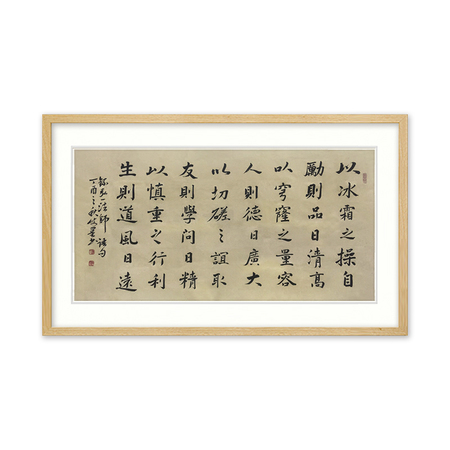 以冰霜之操自
勵則品日清高
以穹窿之量容
人則德日廣大
以切磋之誼取
友則學問日精
以慎重之行利
生則道風日遠
錄弘一法師語句
丁酉之秋